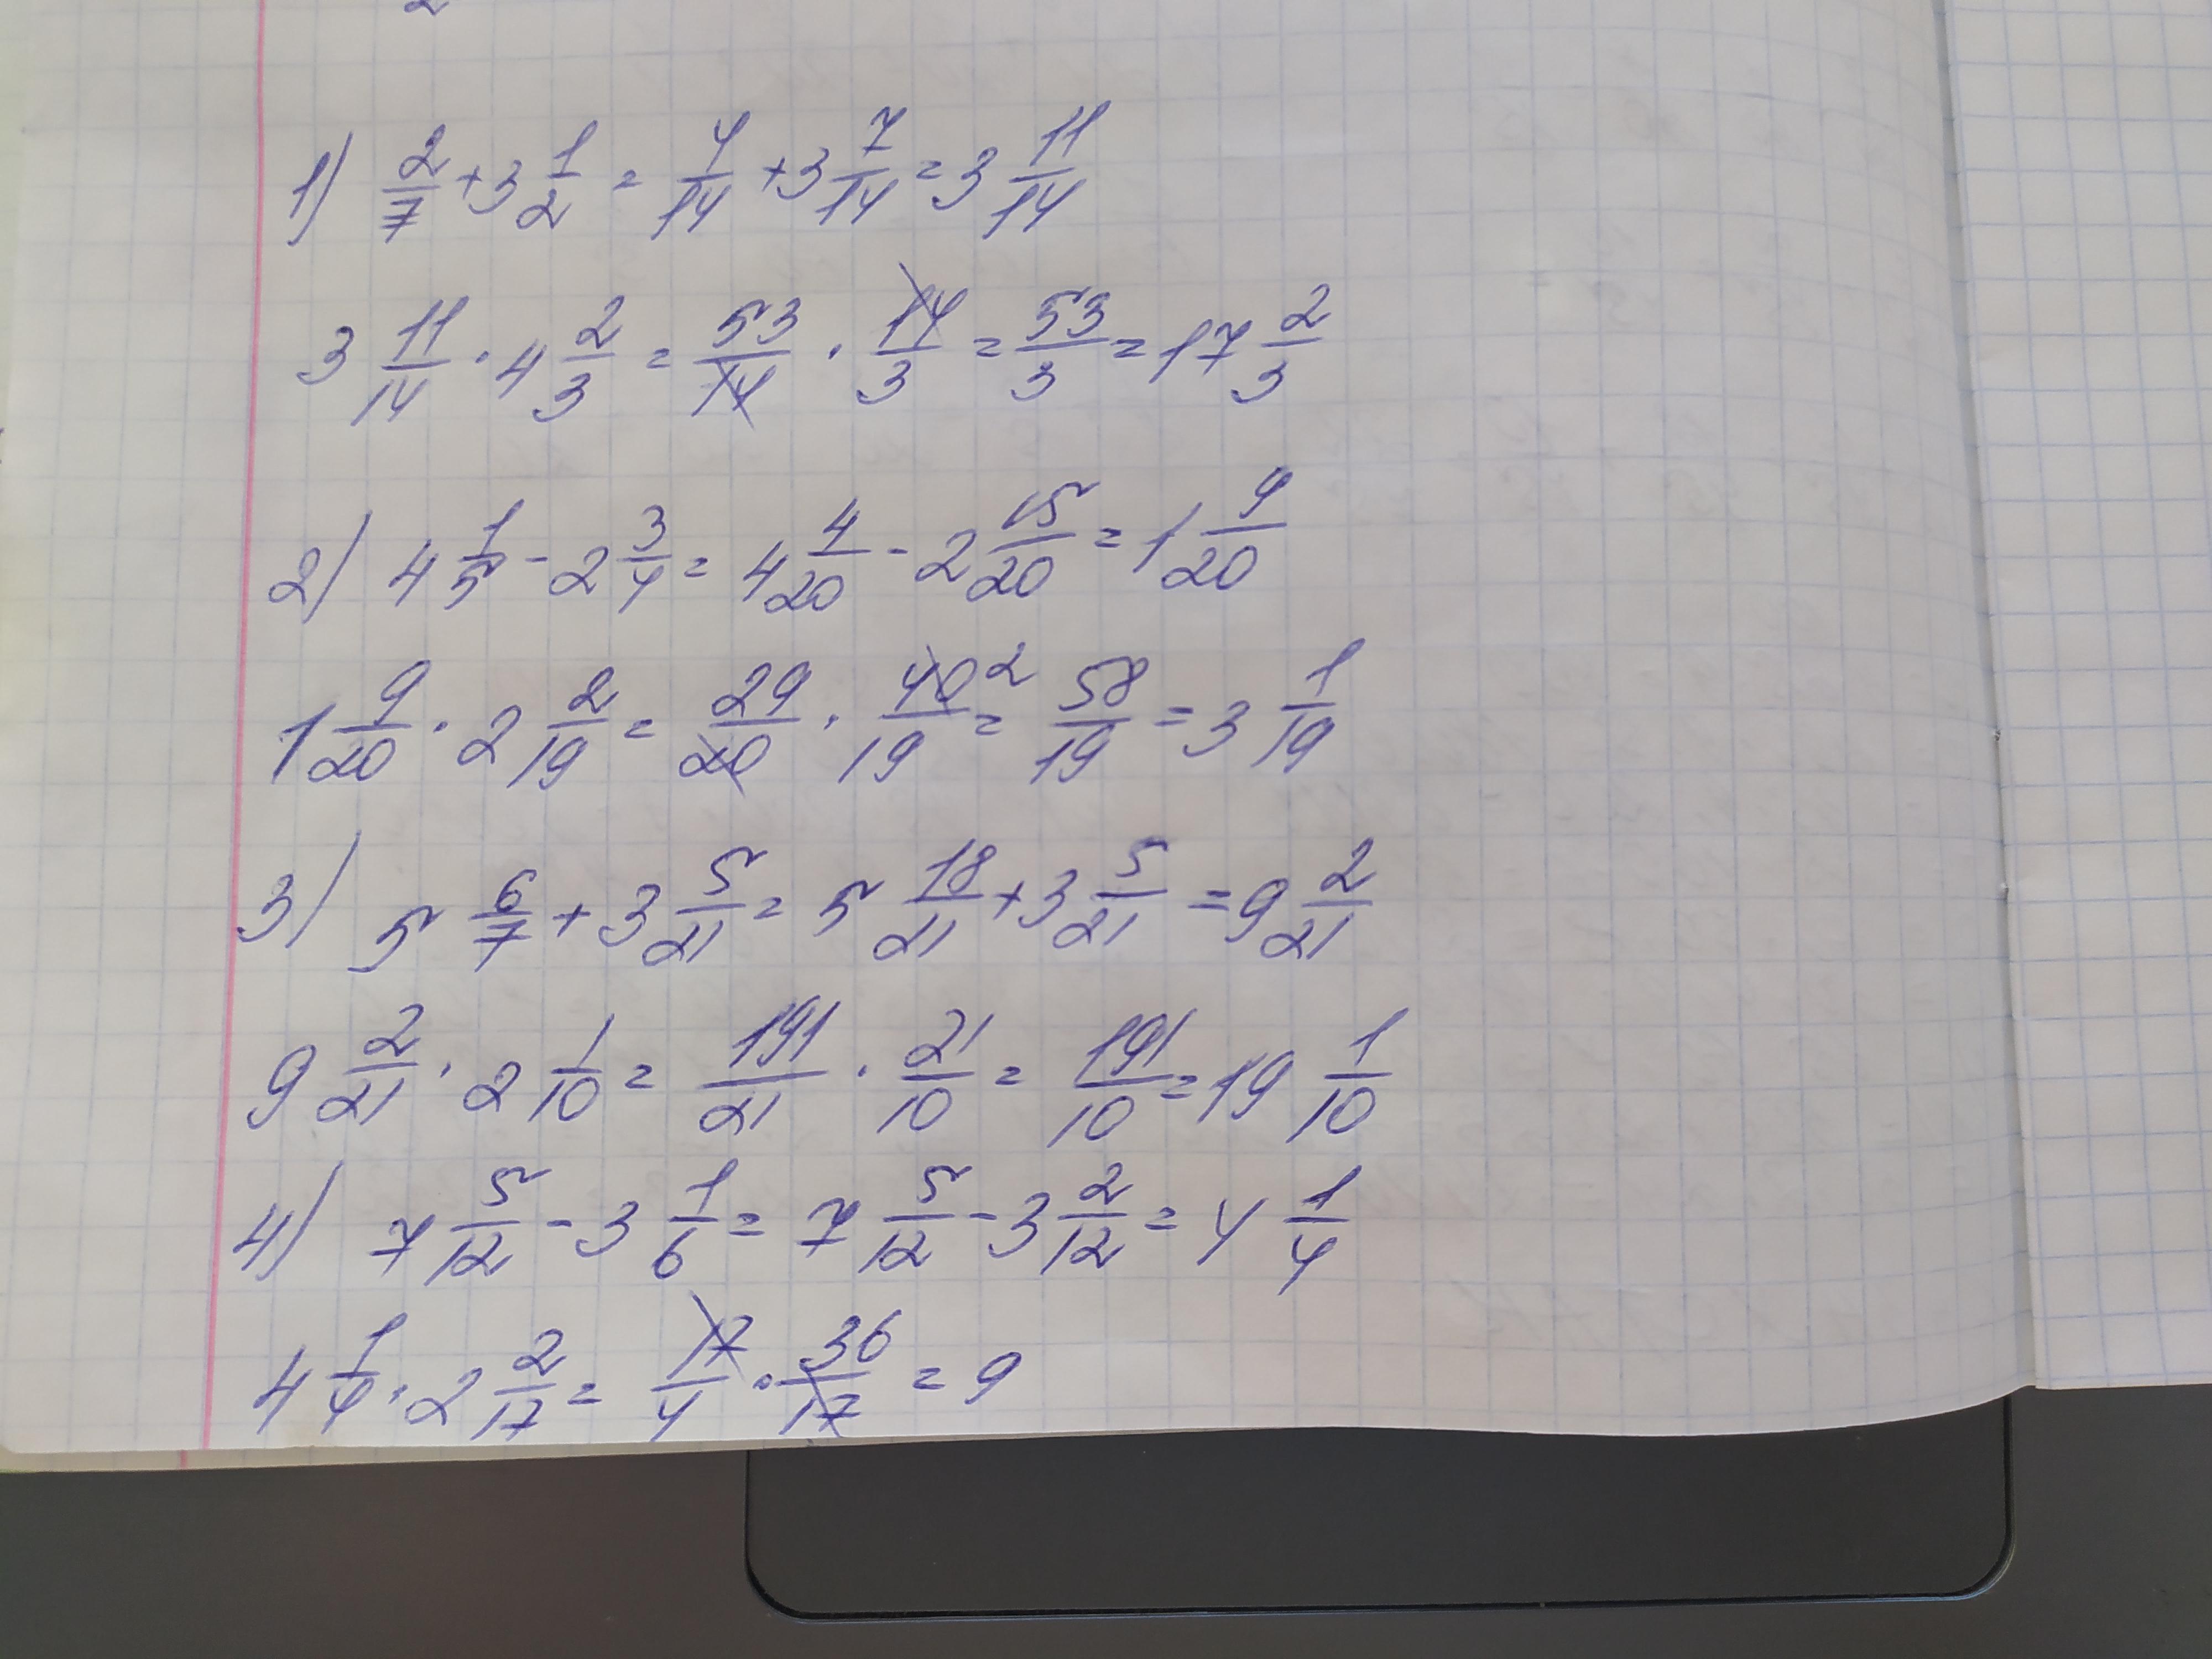 1) 2/7 + 3 1/2 = 4/14 + 3 7/14 = 3 11/14
3 11/14 · 4 2/3 = 53/14 · 14/3 = 53/3 = 17 2/3
2) 4 1/5 - 2 3/4 = 4 4/20 - 2 15/20 = 1 9/20
1 9/20 · 2 2/19 = 29/20 · 40/19 2 = 58/19 = 3 1/19
3) 5 6/7 + 3 5/21 = 5 18/21 + 3 5/21 = 9 2/21
9 2/21 · 2 1/10 = 191/21 · 21/10 = 191/10 = 19 1/10
4) 7 5/12 - 3 1/6 = 7 5/12 - 3 2/12 = 4 1/4
4 1/4 · 2 2/17 = 17/4 · 36/17 = 9